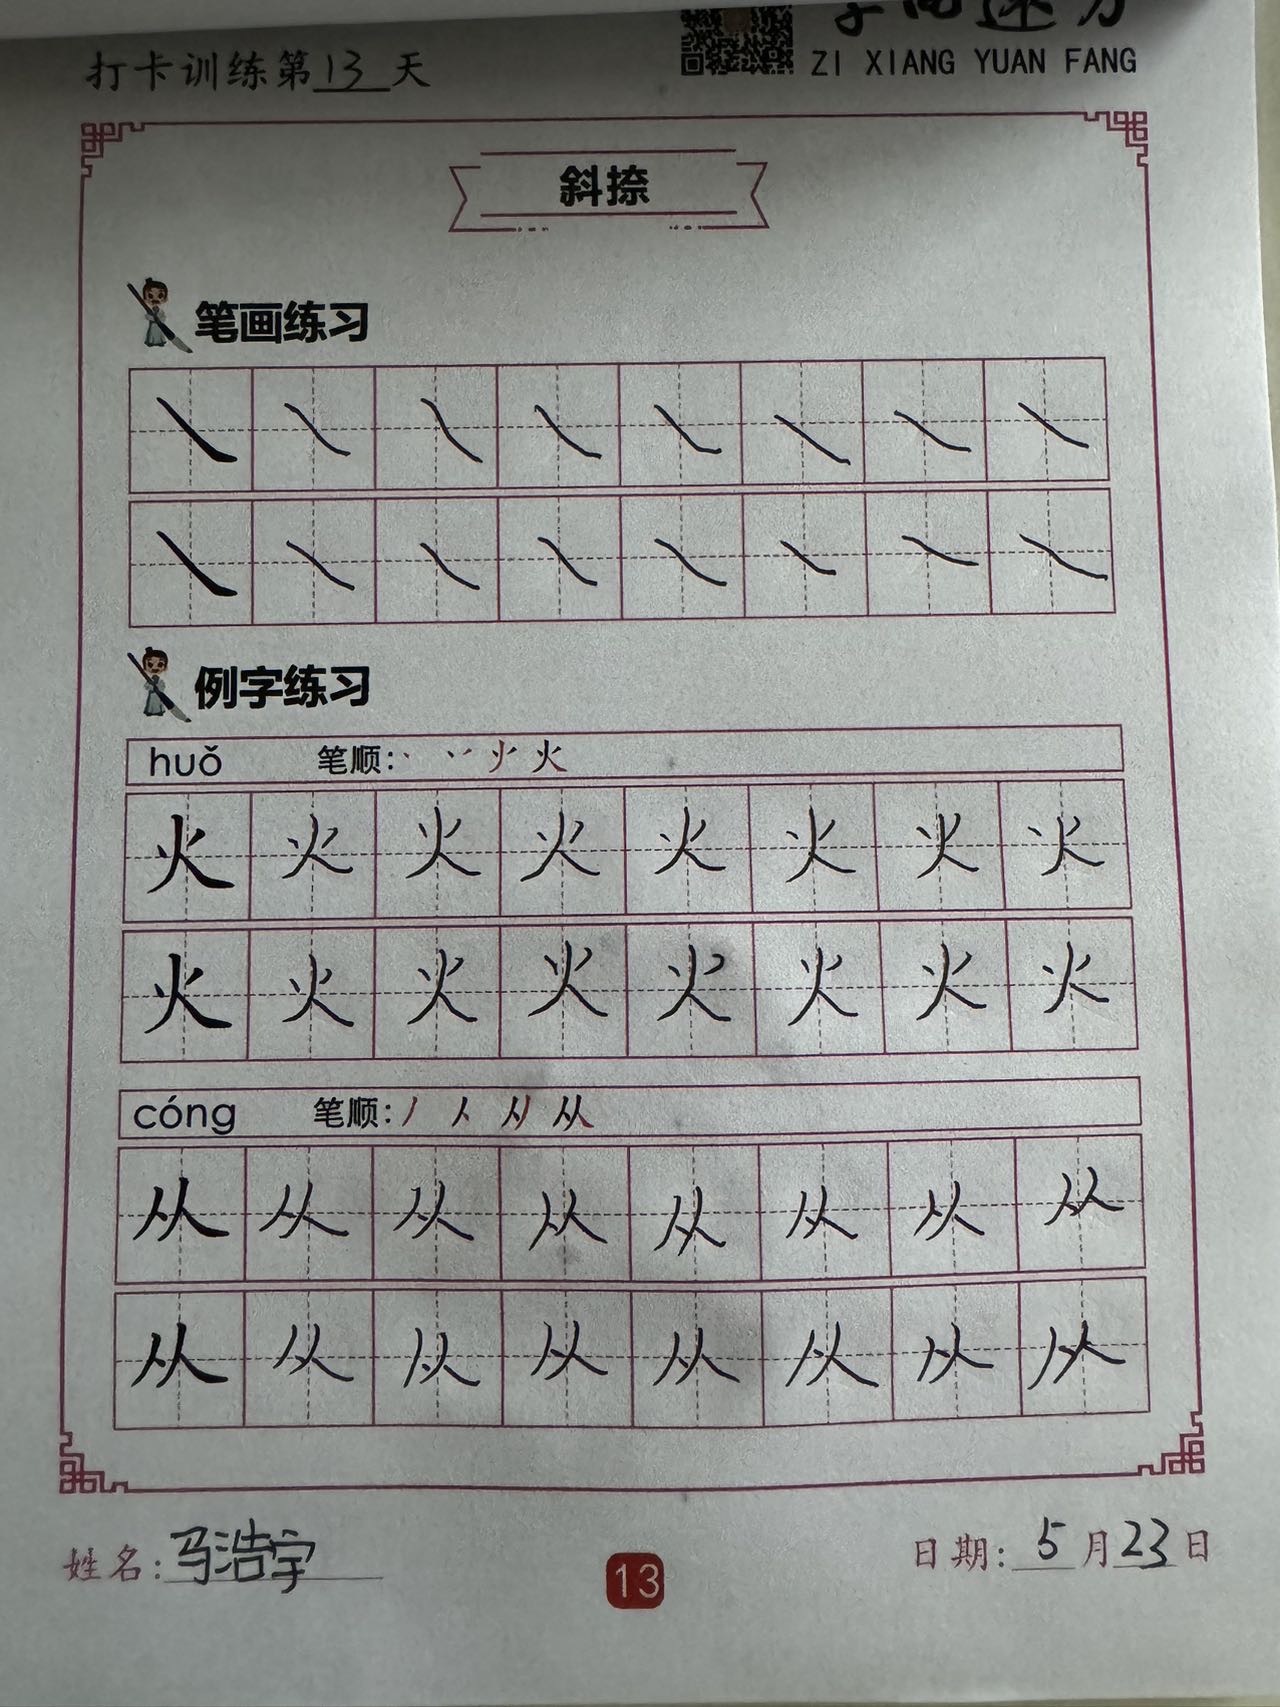 ZI XIANG YUAN FANG
打卡训练第13天
斜捺
笔画练习
例字练习
huǒ 笔顺: 火
火 火 火 火 火 火 火 火
火 火 火 火 火 火 火 火
cóng 笔顺: 丿 人 从
从 从 从 从 从 从 从 从
从 从 从 从 从 从 从 从
姓名: 马浩宇 13 日期: 5月23日